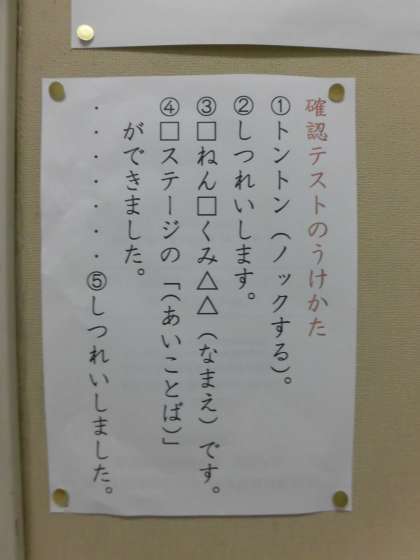 確認テストのうけかた
①トントン（ノックする）。
②しつれいします。
③□ねん□くみ△△（なまえ）です。
④□ステージの「（あいことば）」
ができました。
・・・・・・・⑤しつれいしました。